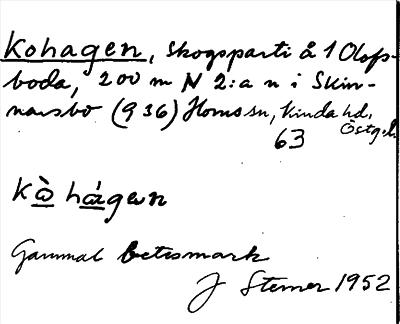 Kohagen, skogsparti å 1 Olofs-
boda, 200 m N 2:a n i Skin-
narsbo (936) Horns sn, Kinda hd,
Östg.l.
63
Kò hágen
Gammal betesmark
J Sterner 1952